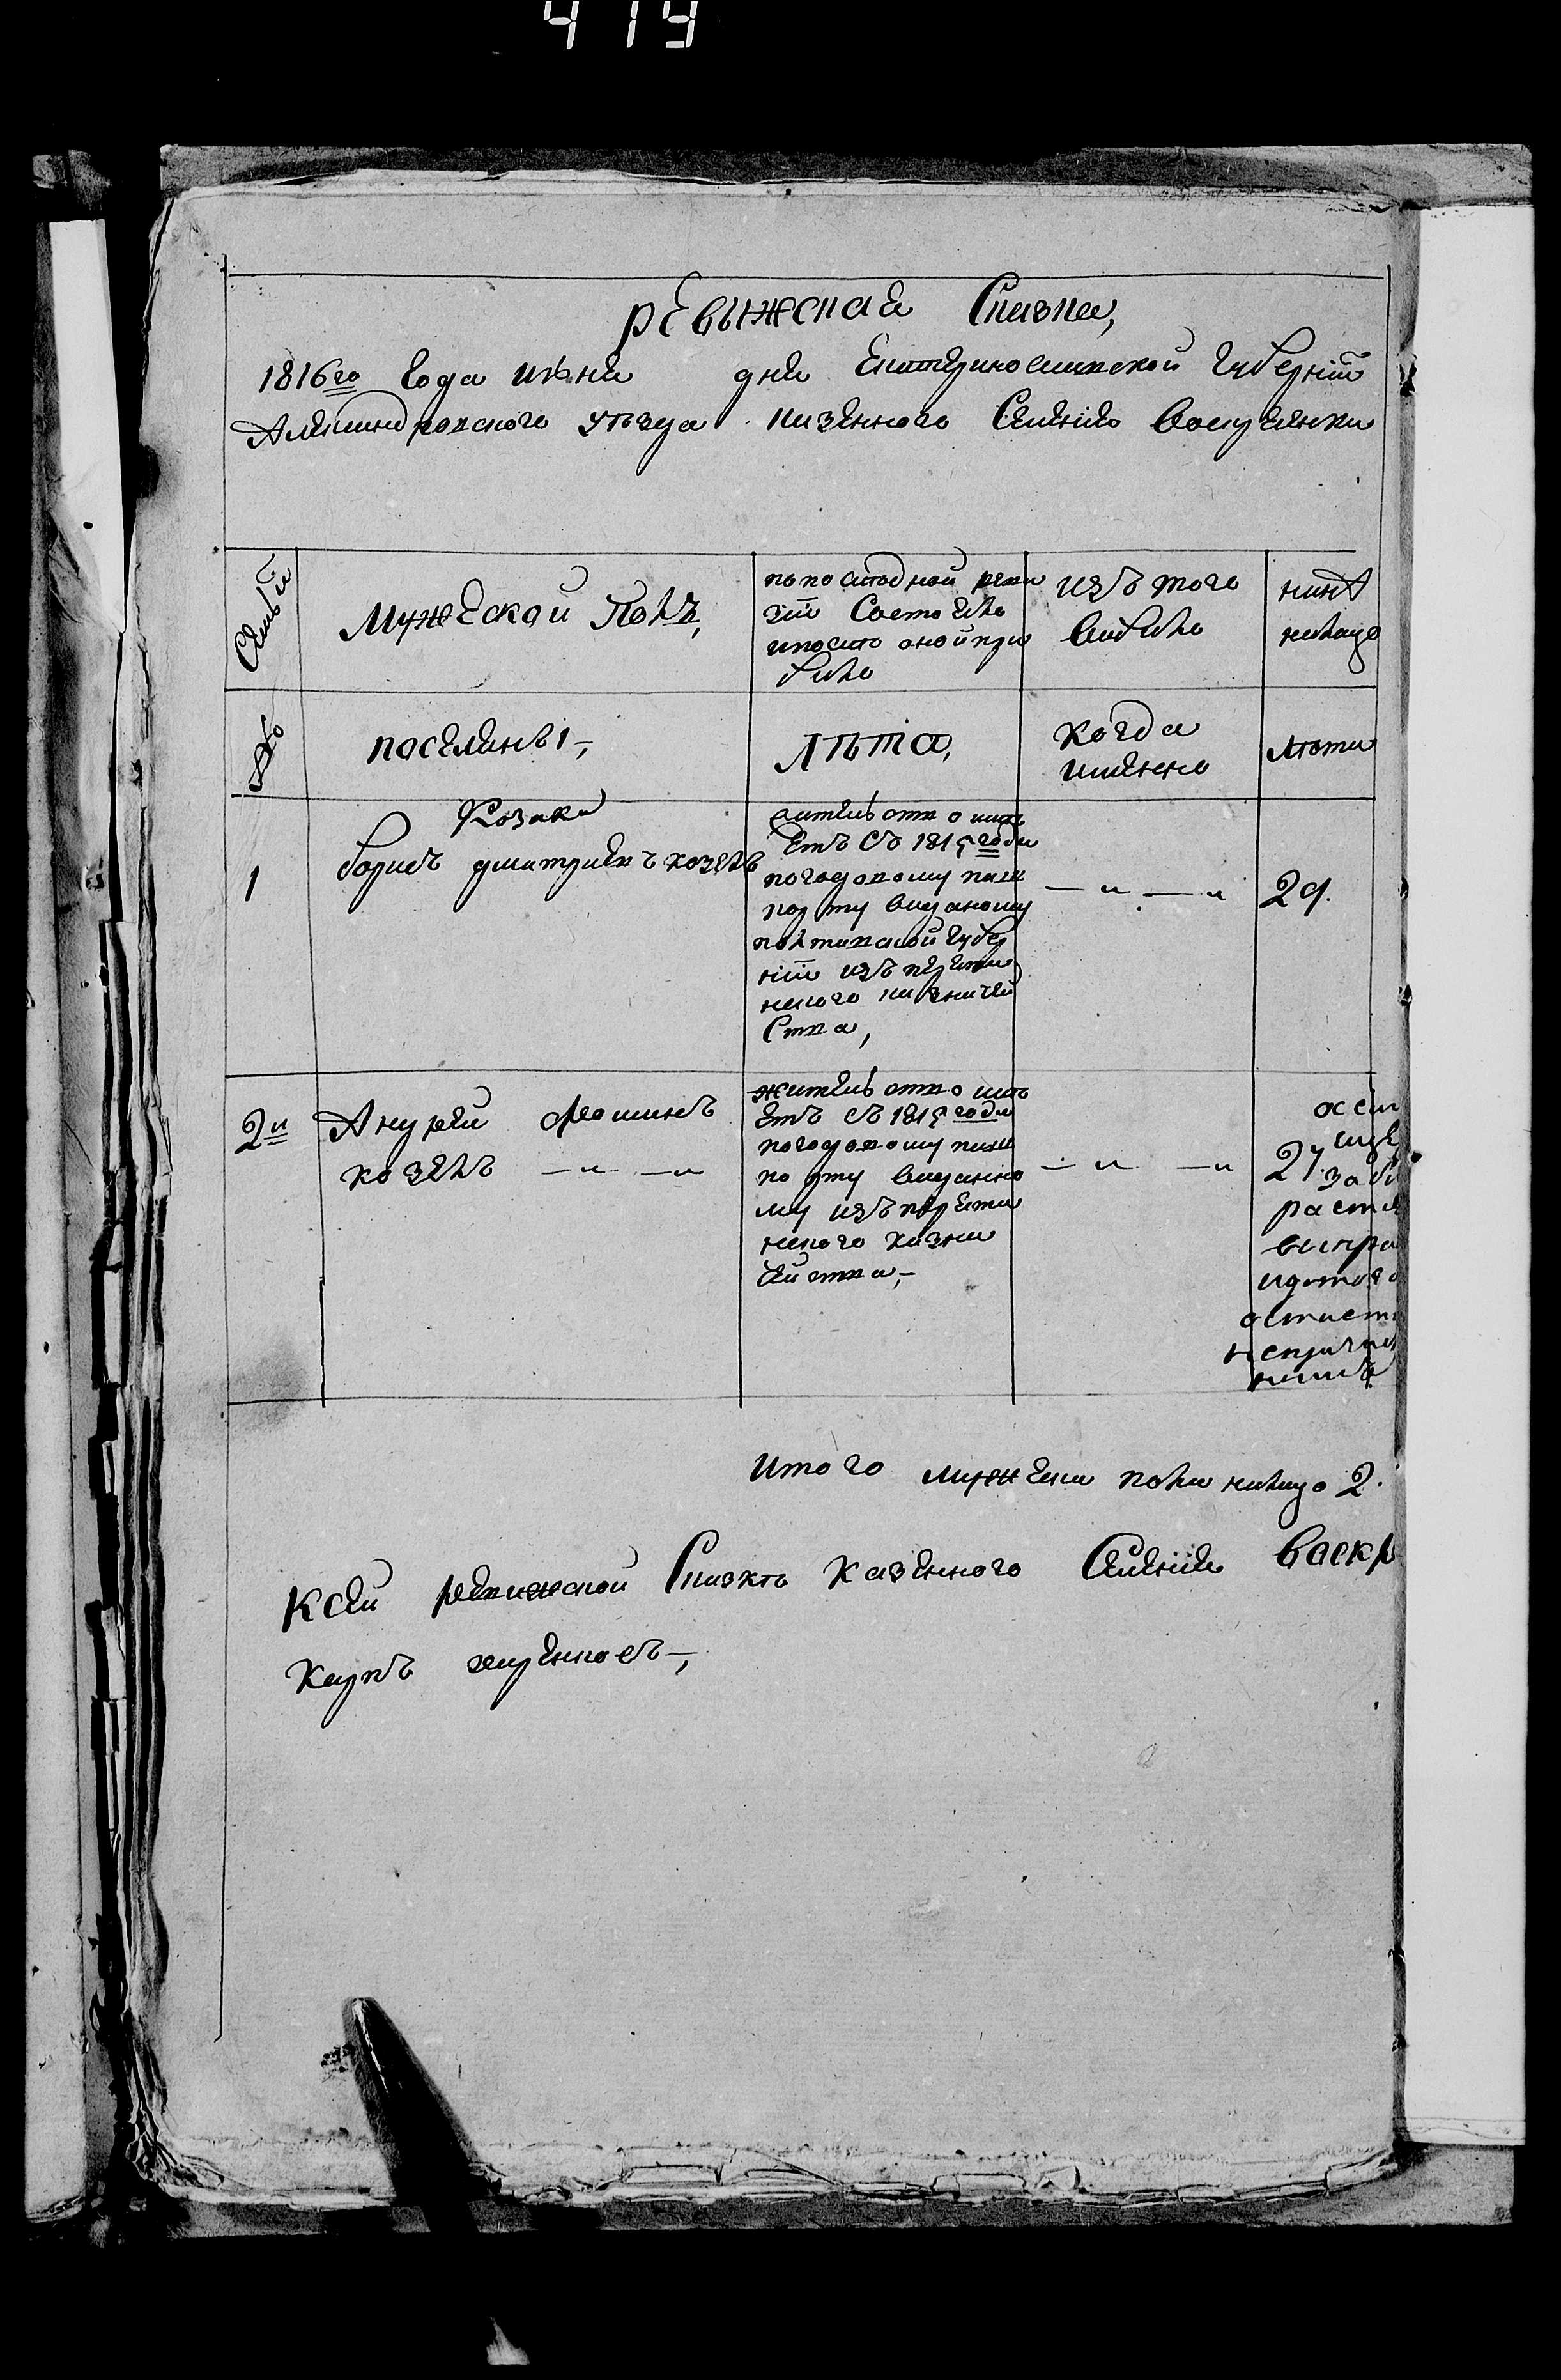 419
ревижская Сказка,
1816го года июня дня Екатеринославской губернии
Александровского уѣзда казенного Селения Воскресенки
Семьи
Мужеской Полъ,
по последной реви
зии Состояло
и после оной при
было
изъ того
выбыло
нынѣ
налицо
№
поселяны,
Лѣта,
когда
именно
лѣта
Козаки
1
борисъ дмитриевъ козелъ
жительство имѣ
етъ съ 1815 года
погодовому паш
порту выданому
полтавской губер
нии изъ
ского казначей
ства,
— „ — „
29.
2й
Андрей Фоминъ
козелъ — „ — „
жительство имѣ
етъ съ 1815 года
погодовому паш
порту выданно
му изъ
ского казна
чейства,—
— „ — „
27.
итого мужеска пола налицо 2.
К сей ревижской Сказкѣ казенного Селения Воскр